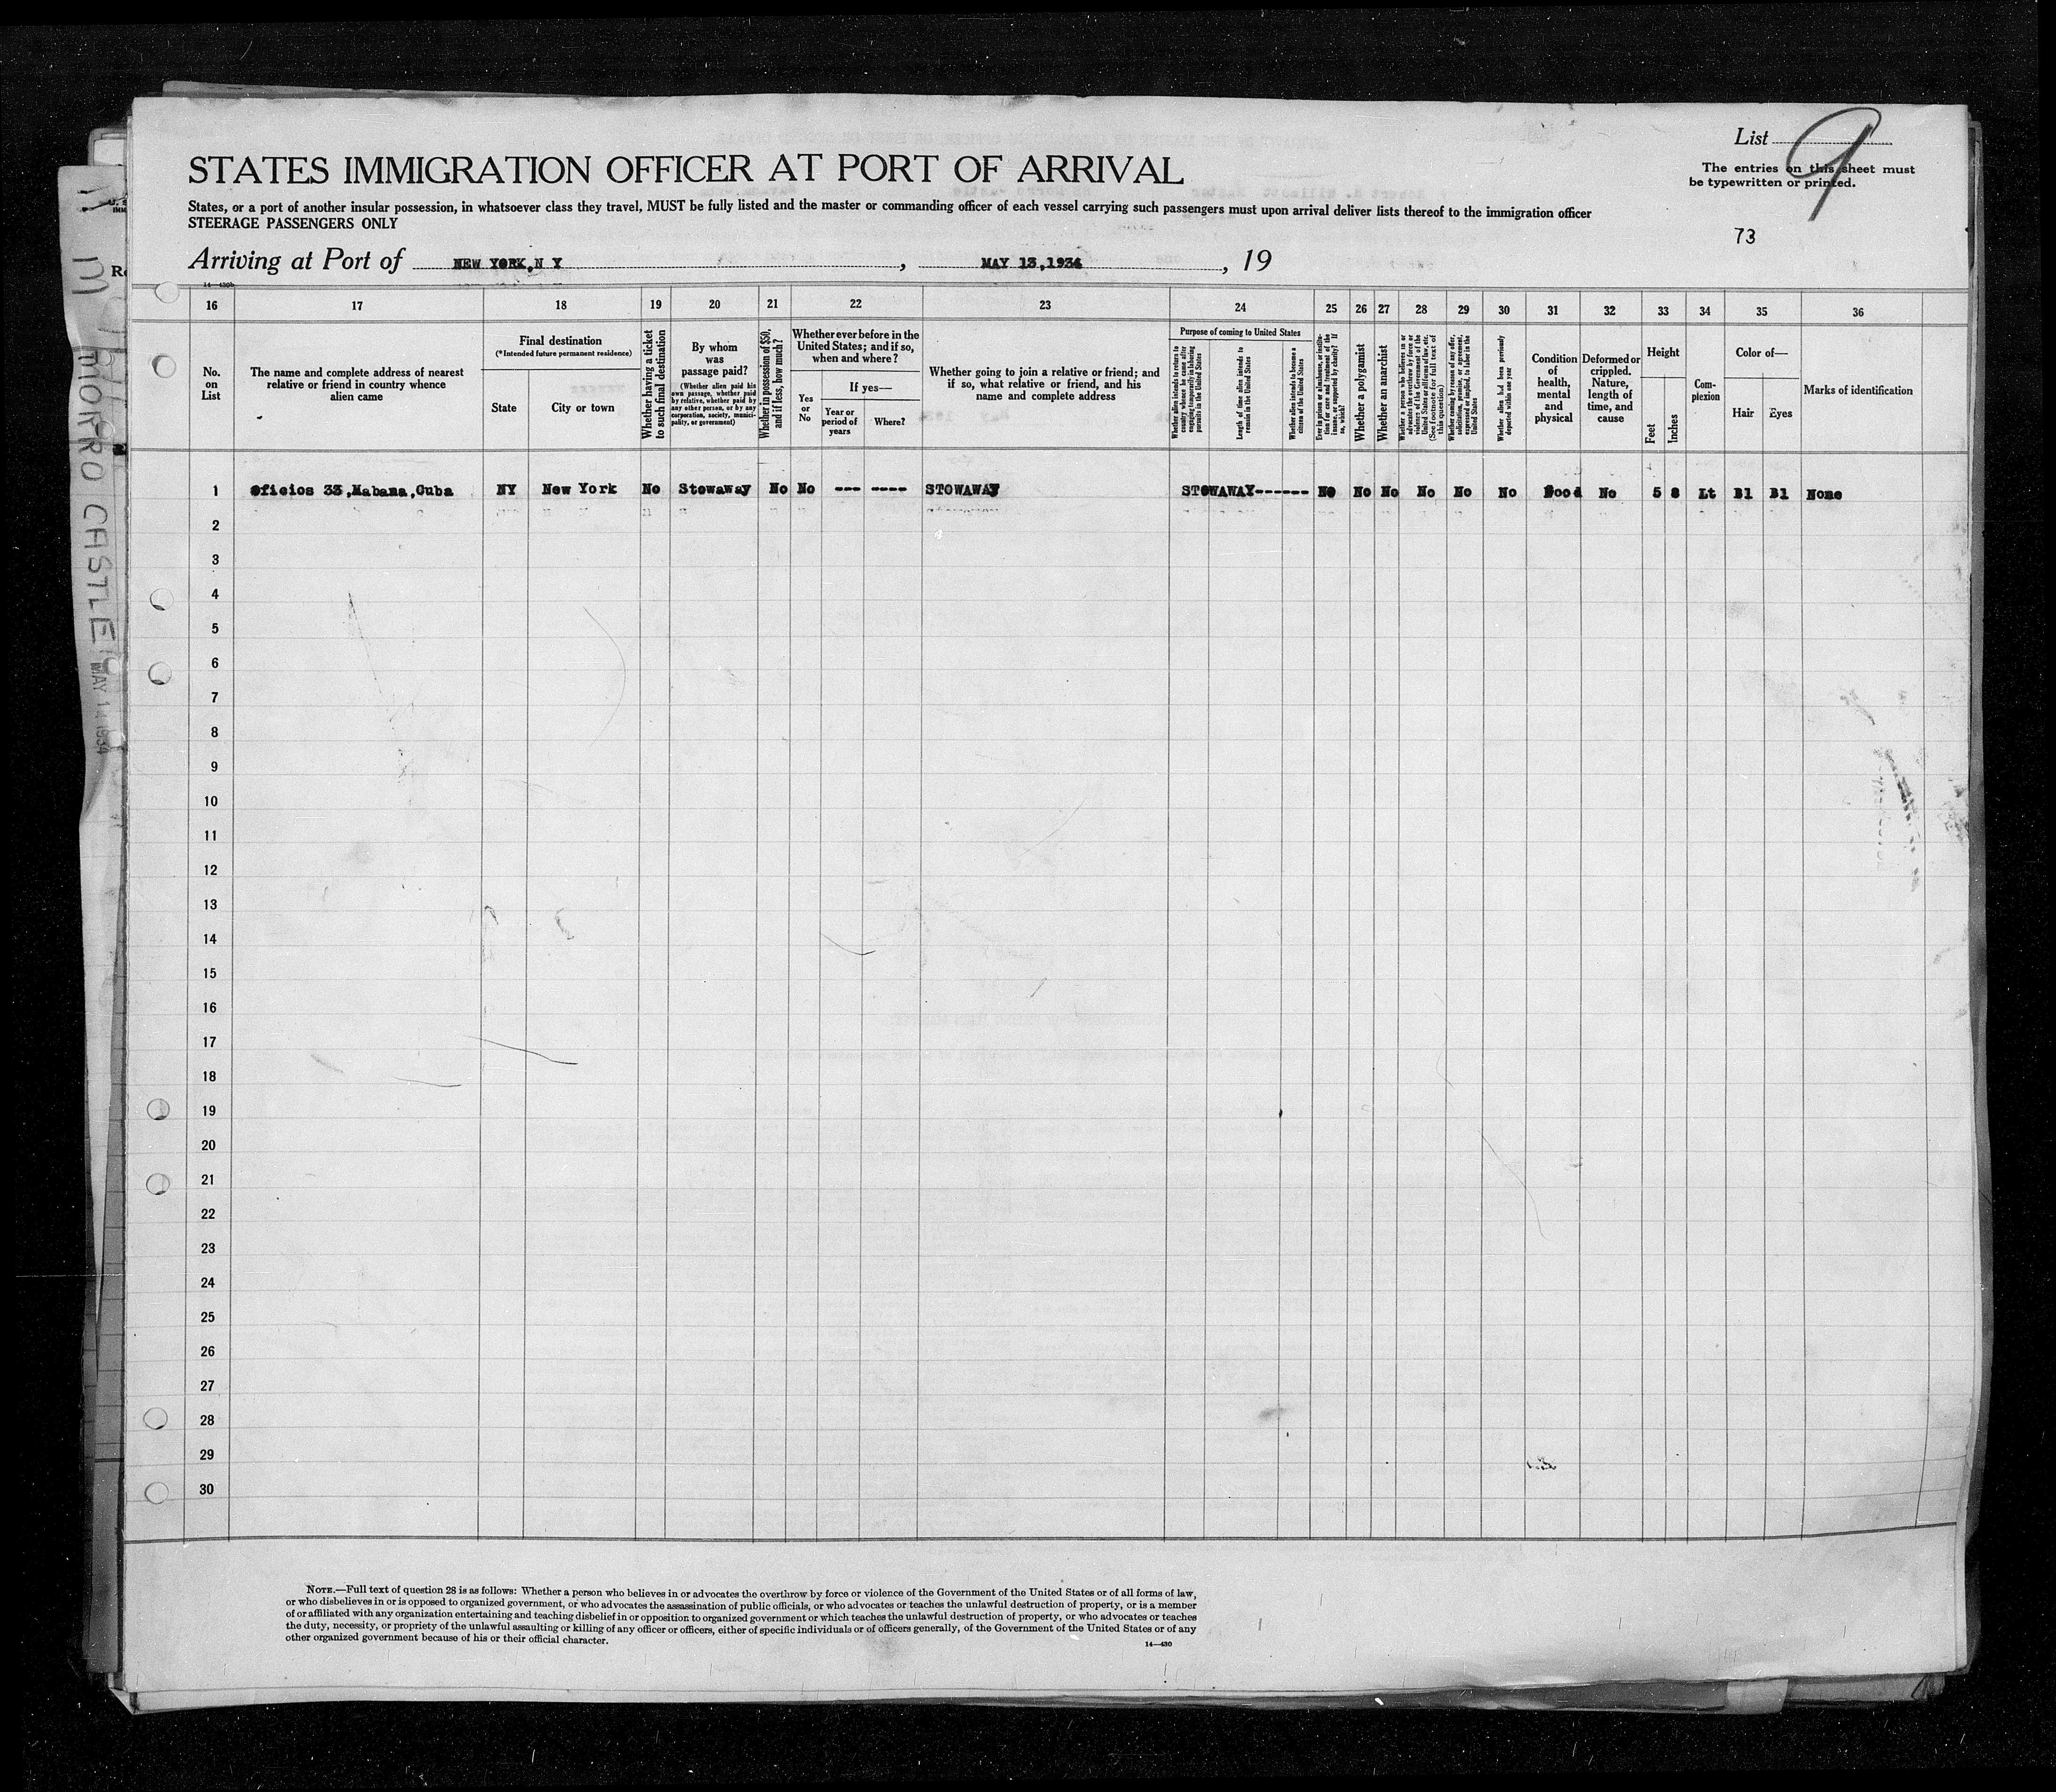 List 9
STATES IMMIGRATION OFFICER AT PORT OF ARRIVAL
The entries on this sheet must
be typewritten or printed.
States, or a port of another insular possession, in whatsoever class they travel, MUST be fully listed and the master or commanding officer of each vessel carrying such passengers must upon arrival deliver lists thereof to the immigration officer
STEERAGE PASSENGERS ONLY
73
Arriving at Port of NEW YORK,N Y, MAY 13,1934, 19
14—430b
16 17 18 19 20 21 22 23 24 25 26 27 28 29 30 31 32 33 34 35 36
No.
on
List
The name and complete address of nearest
relative or friend in country whence
alien came
Final destination
(*Intended future permanent residence)
State
City or town
Whether having a ticket
to such final destination
By whom
was
passage paid?
(Whether alien paid his
own passage, whether paid
by relative, whether paid by
any other person, or by any
corporation, society, munici-
pality, or government)
Whether in possession of $50,
and if less, how much?
Whether ever before in the
United States; and if so,
when and where?
Yes
or
No
If yes—
Year or
period of
years
Where?
Whether going to join a relative or friend; and
if so, what relative or friend, and his
name and complete address
Purpose of coming to United States
Whether alien intends to return to
country whence he came after
engaging temporarily in laboring
pursuits in the United States
Length of time alien intends to
remain in the United States
Whether alien intends to become a
citizen of the United States
Ever in prison or almshouse, or institu-
tion for care and treatment of the
insane, or supported by charity? If
so, which?
Whether a polygamist
Whether an anarchist
Whether a person who believes in or
advocates the overthrow by force or
violence of the Government of the
United States or all forms of law, etc.
(See footnote for full text of
this question)
Whether coming by reason of any offer,
solicitation, promise, or agreement,
expressed or implied, to labor in the
United States
Whether alien had been previously
deported within one year
Condition
of
health,
mental
and
physical
Deformed or
crippled.
Nature,
length of
time, and
cause
Height
Feet
Inches
Com-
plexion
Color of—
Hair
Eyes
Marks of identification
1 Oficios 33,Habana,Cuba NY New York No Stowaway No No --- ---- STOWAWAY STOWAWAY------ NO No No No No No Good No 5 8 Lt Bl Bl None
2
3
4
5
6
7
8
9
10
11
12
13
14
15
16
17
18
19
20
21
22
23
24
25
26
27
28
29
30
NOTE.—Full text of question 28 is as follows: Whether a person who believes in or advocates the overthrow by force or violence of the Government of the United States or of all forms of law,
or who disbelieves in or is opposed to organized government, or who advocates the assassination of public officials, or who advocates or teaches the unlawful destruction of property, or is a member
of or affiliated with any organization entertaining and teaching disbelief in or opposition to organized government or which teaches the unlawful destruction of property, or who advocates or teaches
the duty, necessity, or propriety of the unlawful assaulting or killing of any officer or officers, either of specific individuals or of officers generally, of the Government of the United States or of any
other organized government because of his or their official character.
14—430
MORRO CASTLE
MAY 14 1934